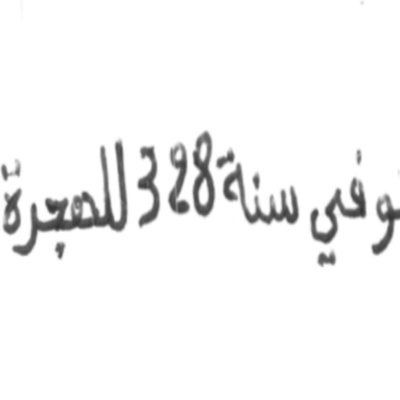 توفي سنة 328 للهجرة